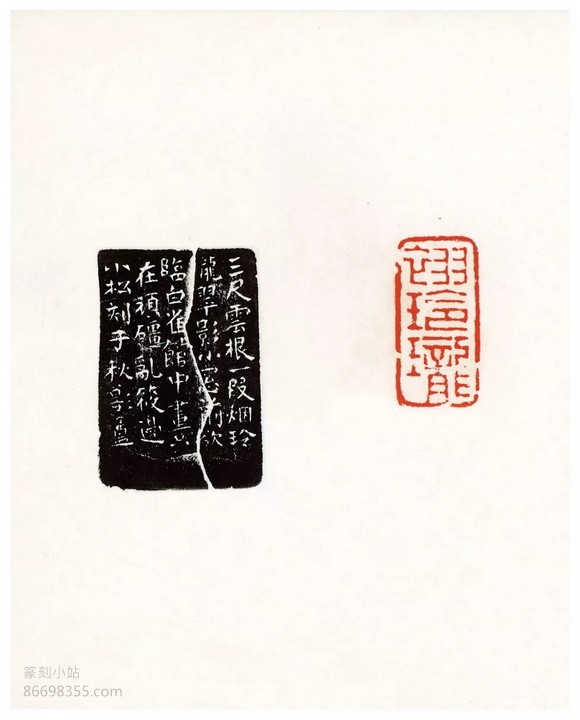 翠玲瓏
三尺雲根一段烟玲
瓏翠影小窻前次
臨白雀館中畫只
在頑礓亂筱邊
小松刻于秋影盦
篆刻小站
86698355.com